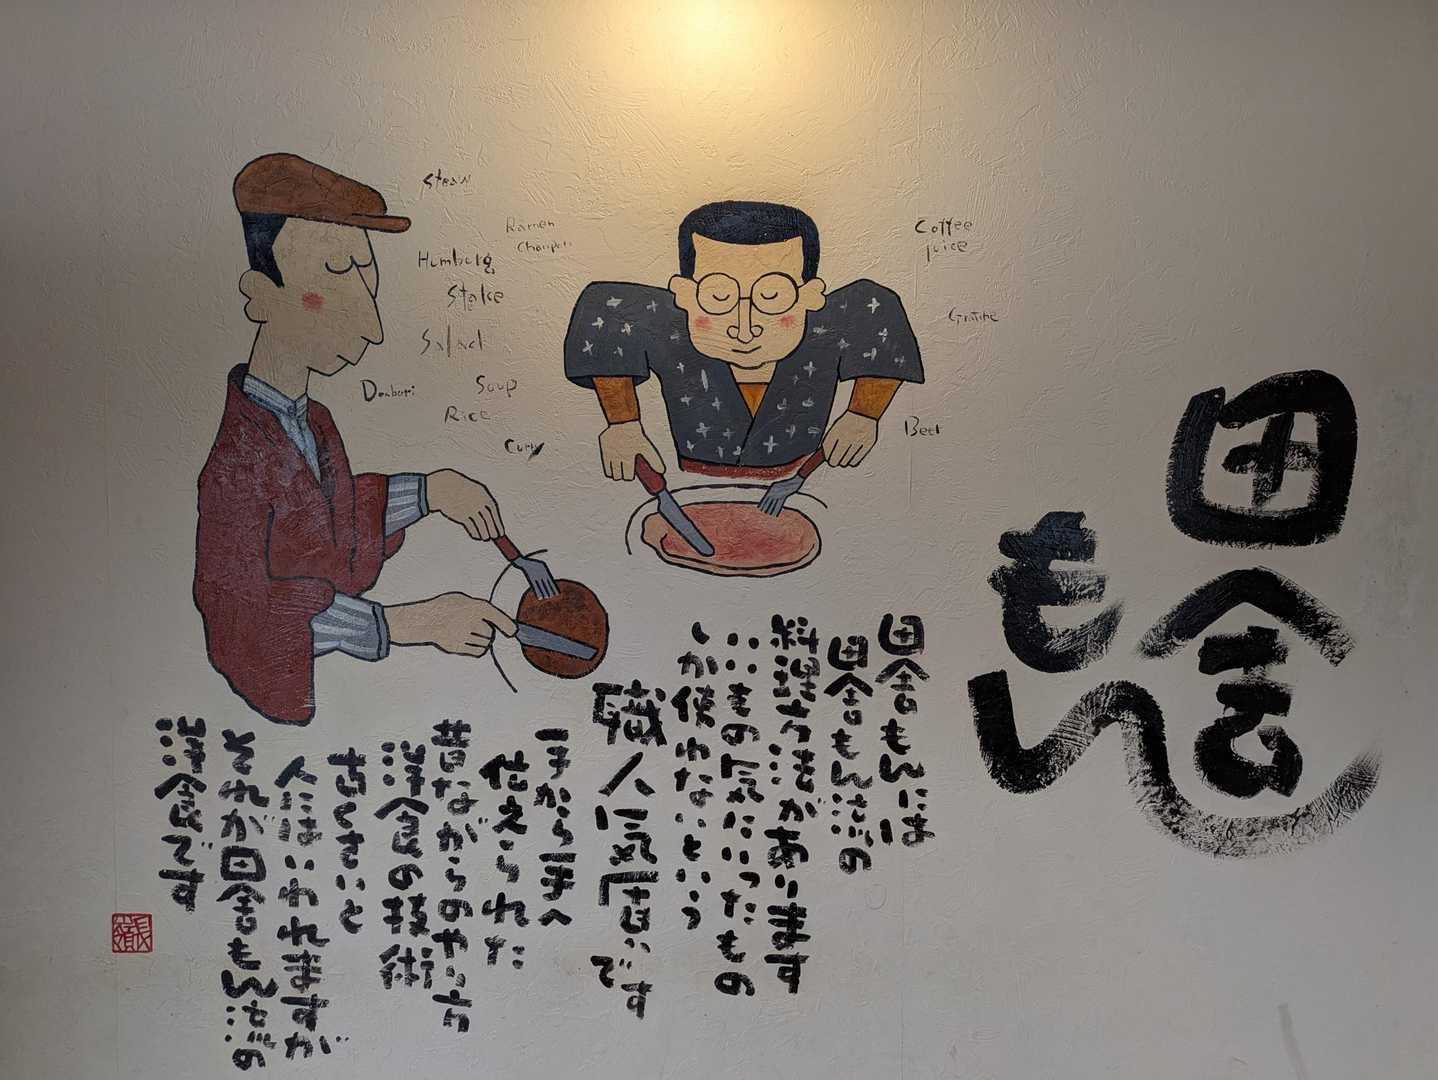 田舎
もん
田舎もんには
田舎もん流の
料理方法があります
いいもの気にいったもの
しか使わないという
職人気質です
手から手へ
伝えられた
昔ながらのやり方
洋食の技術
古くさいと
人にはいわれますが
それが田舎もん流の
洋食です
Steak
Ramen
Hamburg
Stake
Salad
Donburi
Soup
Rice
Curry
Coffee
juice
Beer